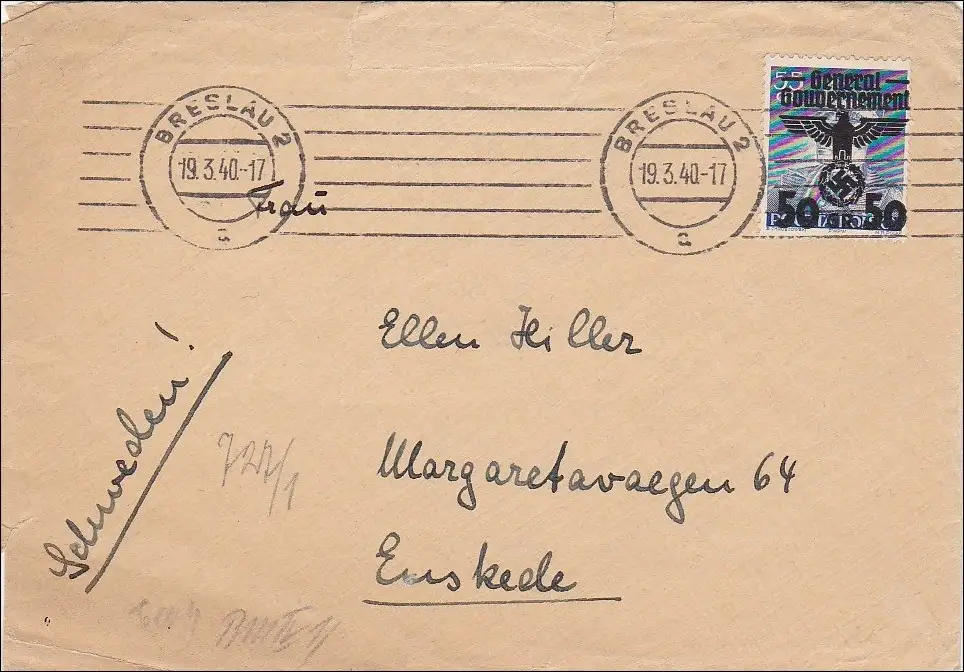 BRESLAU 2
19.3.40.-17
a
BRESLAU 2
19.3.40.-17
a
55
General
Gouvernement
50 50
Frau
Ellen Hiller
Margaretavaegen 64
Enskede
Schweden!
727/1